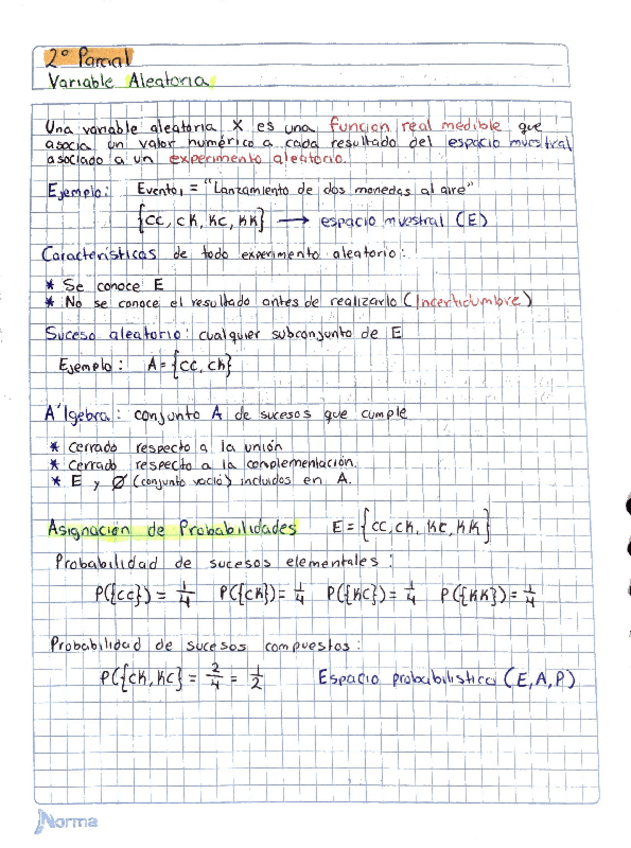 2° Parcial
Variable Aleatoria
Una variable aleatoria, X es una funcion real medible que
asocia un valor numérico a cada resultado del espacio muestral
asociado a un experimento aleatorio.
Ejemplo: Evento₁ = "Lanzamiento de dos monedas al aire"
{CC, CK, KC, KK} → espacio muestral (E)
Características de todo experimento aleatorio:
* Se conoce E
* No se conoce el resultado antes de realizarlo (Incertidumbre)
Suceso aleatorio: cualquier subconjunto de E
Ejemplo: A = {CC, CK}
A'lgebra: conjunto A de sucesos que cumple
* cerrado respecto a la unión
* cerrado respecto a la complementación.
* E y Ø (conjunto vacío) incluidos en A.
Asignación de Probabilidades E = {CC, CK, KC, KK}
Probabilidad de sucesos elementales:
P({CC}) = 1/4 P({CK}) = 1/4 P({KC}) = 1/4 P({KK}) = 1/4
Probabilidad de sucesos compuestos:
P({CK, KC} = 2/4 = 1/2 Espacio probabilístico (E, A, P)
Norma